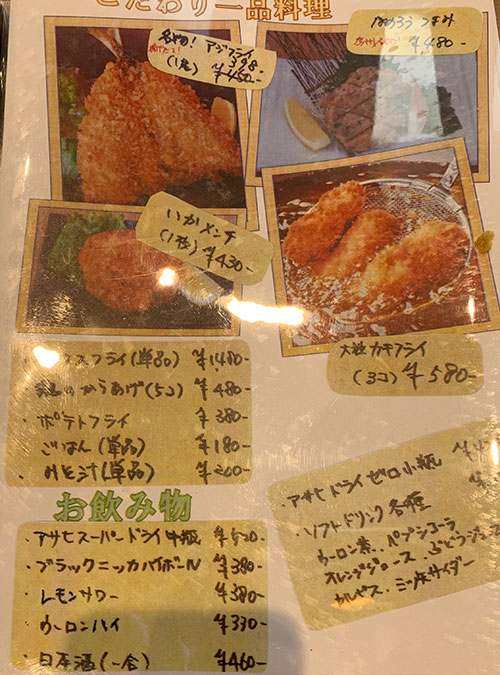 こだわり一品料理
名物! アジフライ
398
(1尾) ¥450-
なめろう つまみ
¥480-
いかメンチ
(1枚) ¥430-
大粒カキフライ
(3コ) ¥580-
フライ(単品) ¥1,480-
鶏のからあげ(5コ) ¥480-
・ポテトフライ ¥380-
・ごはん(単品) ¥180-
・みそ汁(単品) ¥200-
お飲み物
・アサヒスーパードライ中瓶 ¥620-
・ブラックニッカハイボール ¥380-
・レモンサワー ¥380-
・ウーロンハイ ¥330-
・日本酒(一合) ¥460-
・アサヒドライゼロ小瓶
・ソフトドリンク各種
ウーロン茶、ペプシコーラ
オレンジジュース、ぶどうジュース
カルピス、ミツ矢サイダー